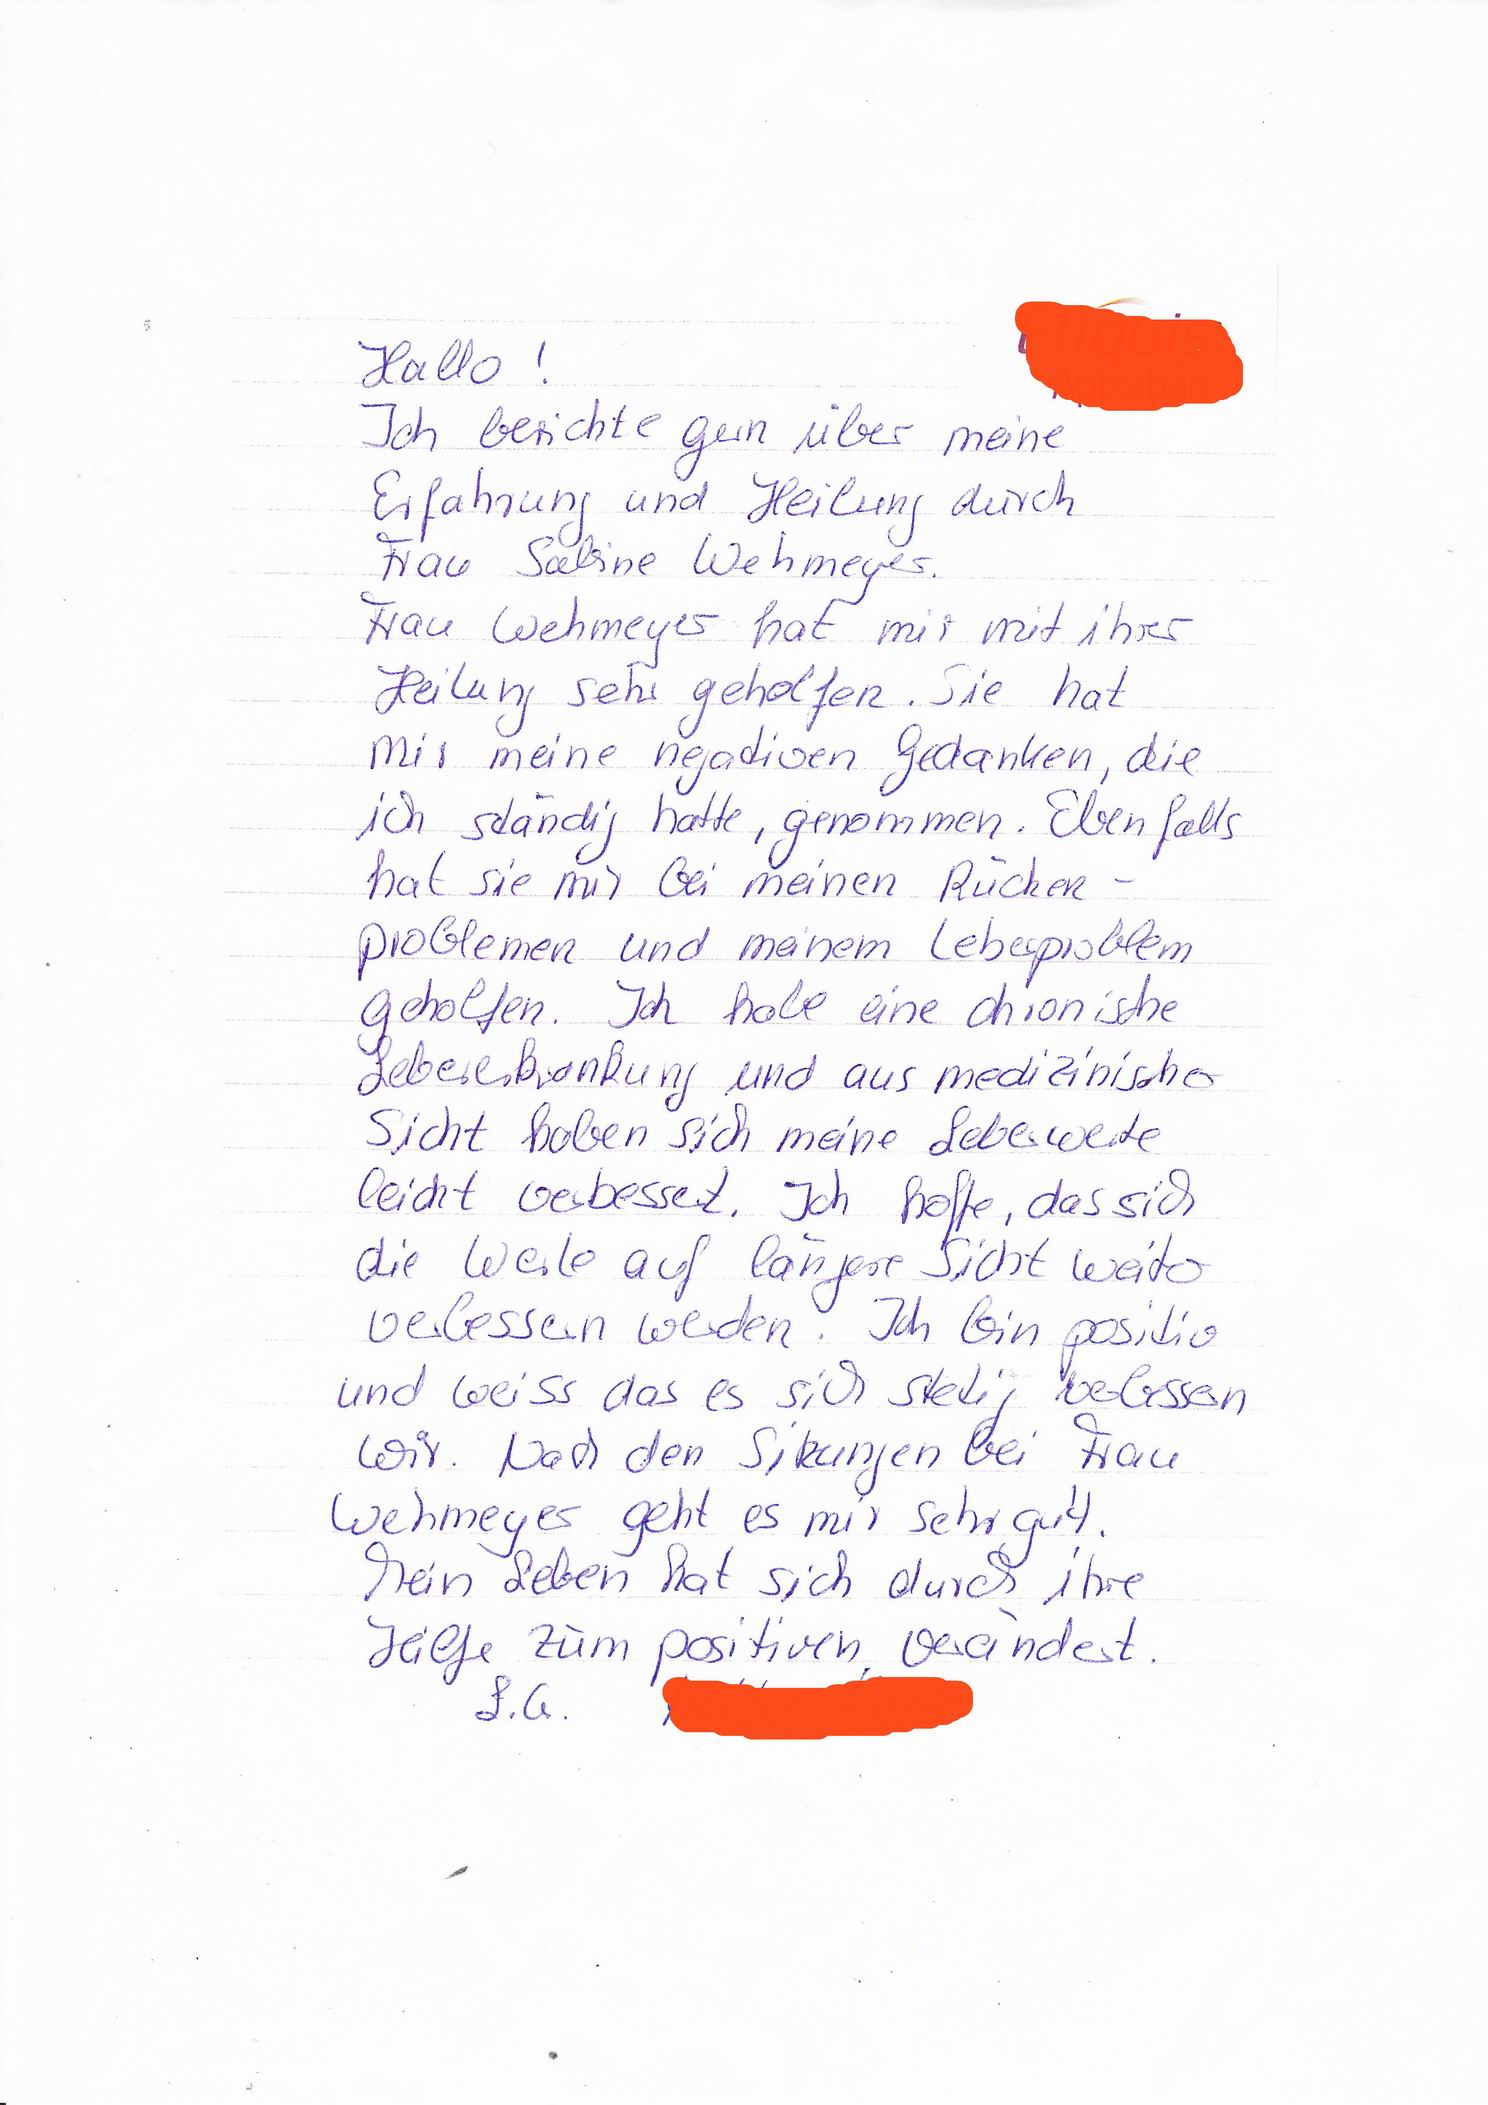 Hallo !
Ich berichte gern über meine
Erfahrung und Heilung durch
Frau Sabine Wehmeyer.
Frau Wehmeyer hat mir mit ihrer
Heilung sehr geholfen. Sie hat
mir meine negativen Gedanken, die
ich ständig hatte, genommen. Ebenfalls
hat sie mir bei meinen Rücken-
problemen und meinem Leberproblem
geholfen. Ich habe eine chronische
Lebererkrankung und aus medizinischer
Sicht haben sich meine Leberwerte
leicht verbessert. Ich hoffe, das sich
die Werte auf längere Sicht weiter
verbessern werden. Ich bin positiv
und weiss das es sich stetig verbessern
wir. Nach den Sitzungen bei Frau
Wehmeyer geht es mir sehr gut.
Mein Leben hat sich durch ihre
Hilfe zum positiven verändert.
L.G.